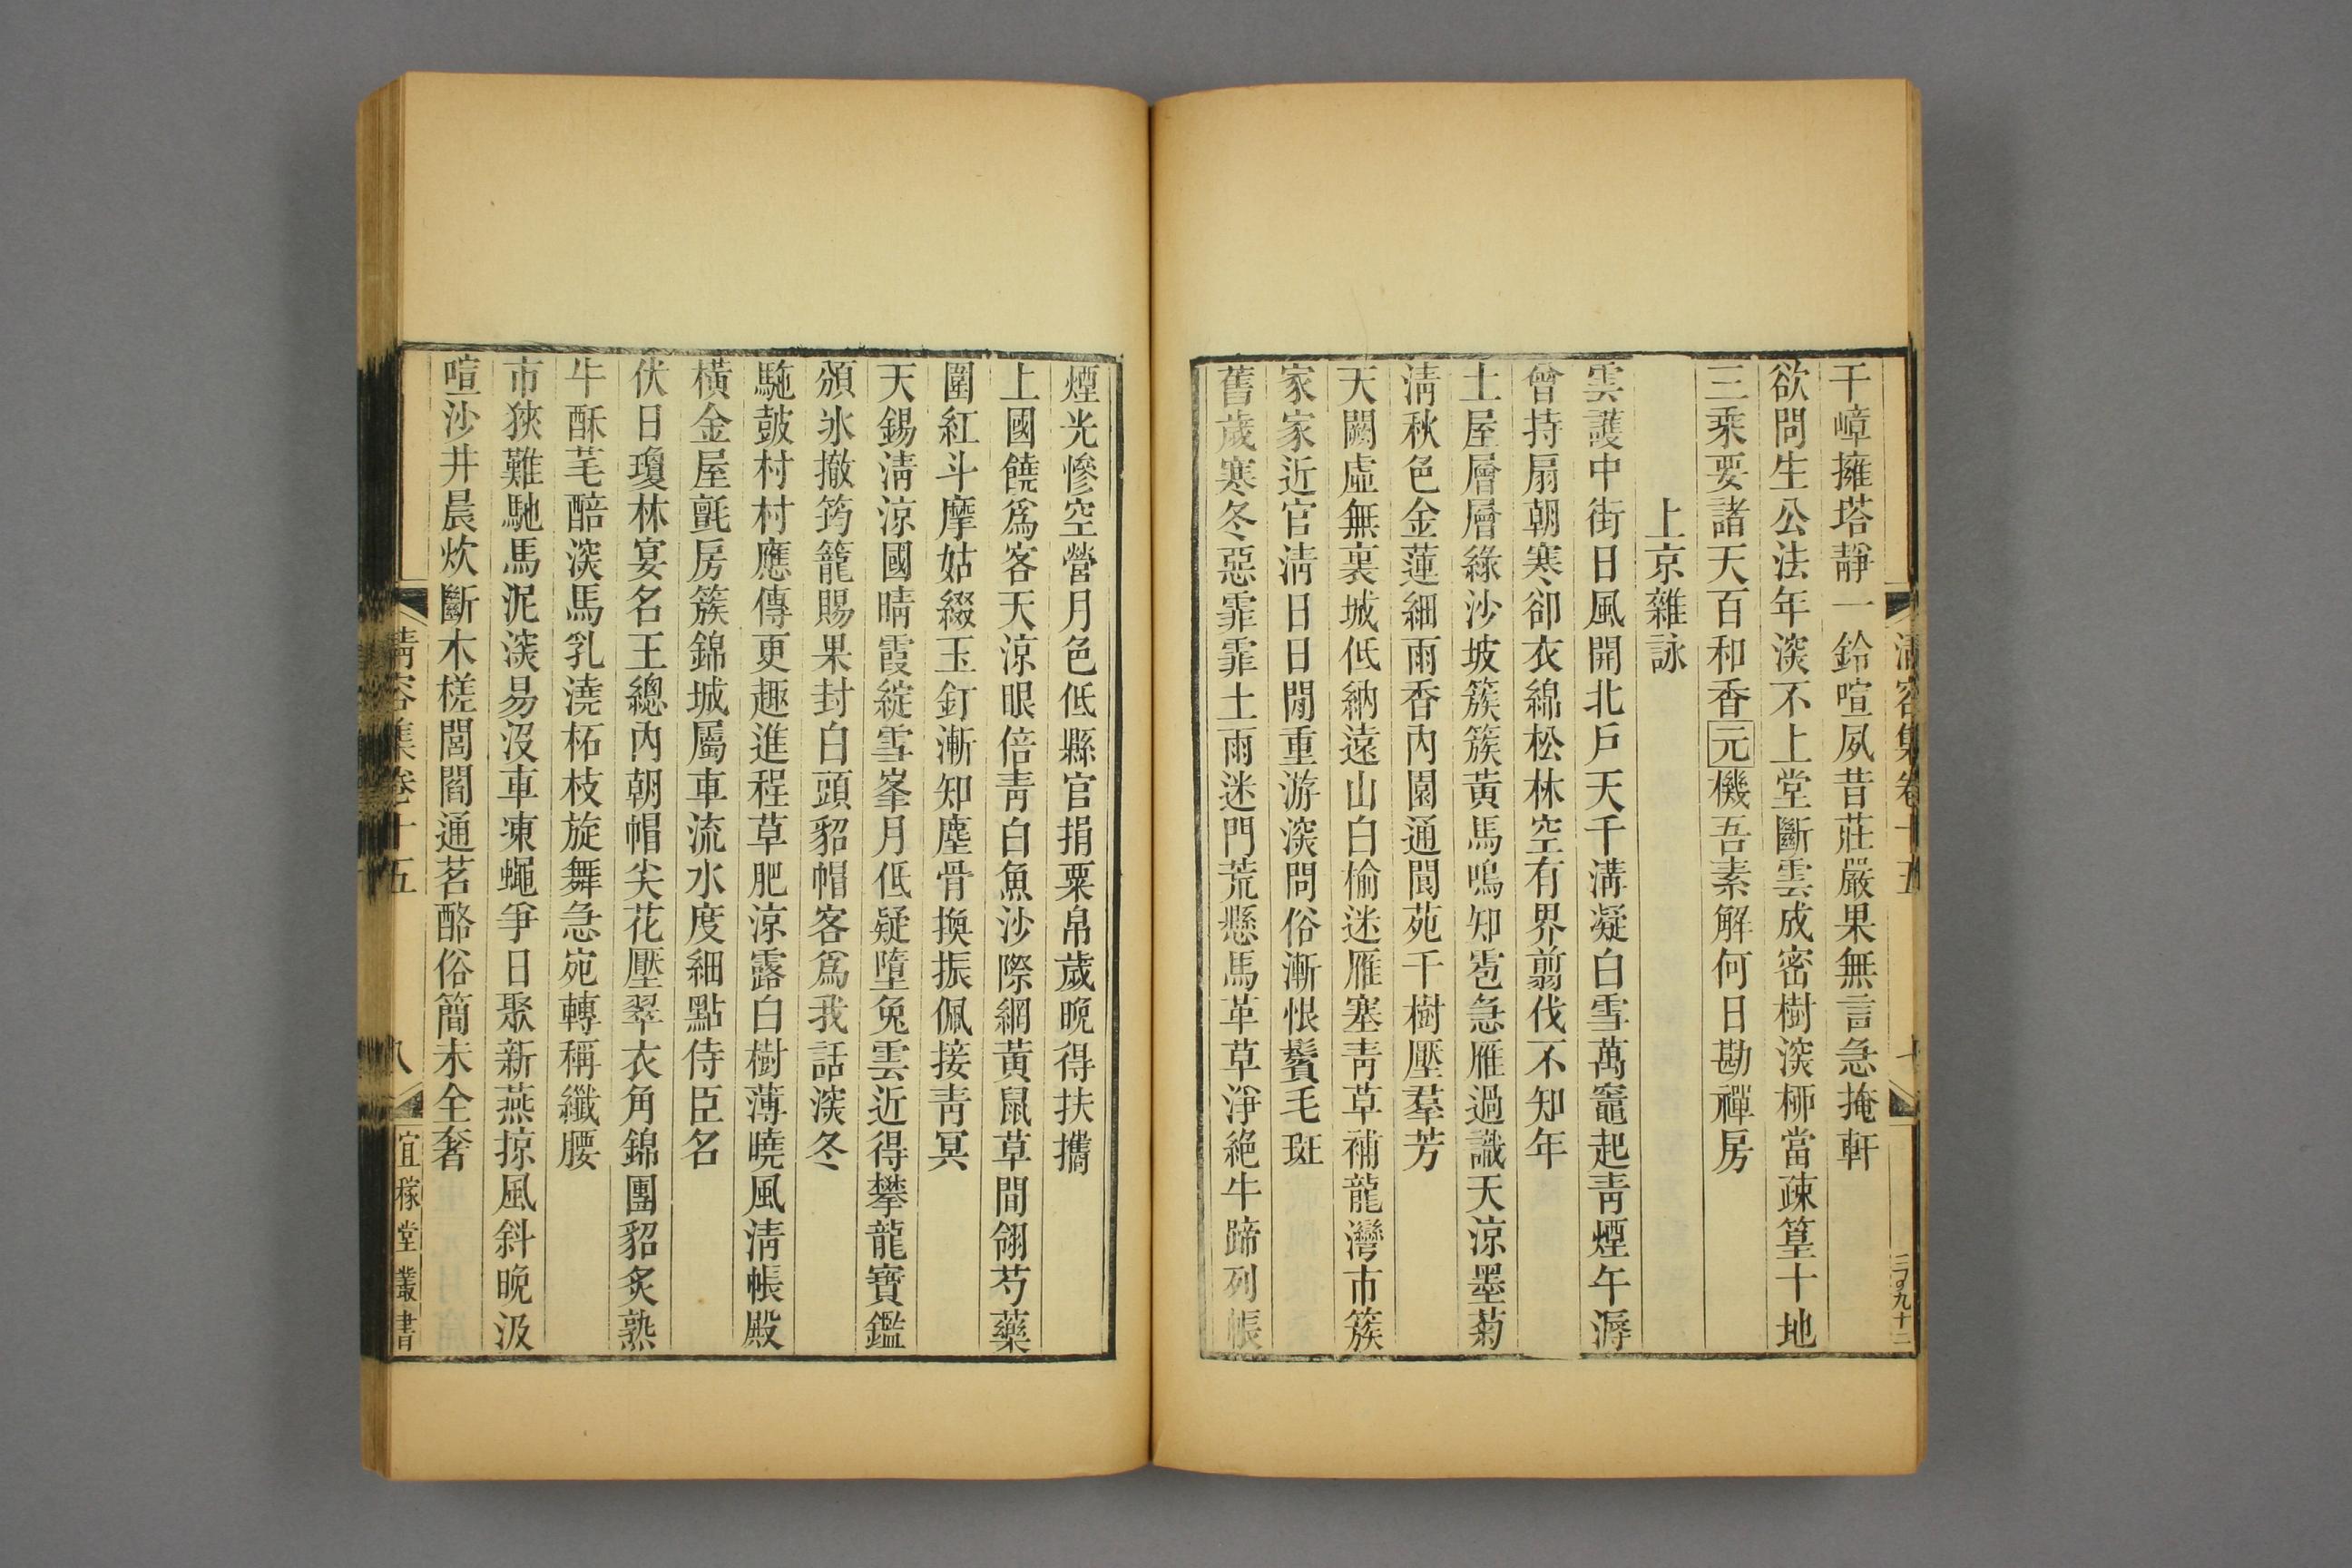 清容集卷十五
千嶂擁塔靜一鈴喧夙昔莊嚴果無言急掩軒
欲問生公法年深不上堂斷雲成密樹深桺當疎篁十地
三乘要諸天百和香元機吾素解何日勘禪房
上京雜詠
雲護中街日風開北戶天千溝凝白雪萬竈起青煙午溽
曾持扇朝寒卻衣綿松林空有界翦伐不知年
土屋層層綠沙坡簇簇黃馬鳴知雹急雁過識天涼墨菊
清秋色金蓮細雨香內園通閬苑千樹壓羣芳
天闕虛無裏城低納遠山白榆迷雁塞青草補龍灣市簇
家家近官清日日閒重游深問俗漸恨鬢毛斑
舊歲寒冬惡霏霏土雨迷門荒懸馬革草淨絶牛蹄列帳
煙光慘空營月色低縣官捐粟帛歲晚得扶攜
上國饒爲客天涼眼倍青白魚沙際網黃鼠草間翎芍藥
圍紅斗摩姑綴玉釘漸知塵骨換振佩接青冥
天錫清涼國晴霞綻雪峯月低疑墮兔雲近得攀龍寶鑑
頒氷撤筠籠賜果封白頭貂帽客爲我話深冬
駞鼓村村應傳更趣進程草肥涼露白樹薄曉風清帳殿
橫金屋氈房簇錦城屬車流水度細點侍臣名
伏日瓊林宴名王總內朝帽尖花壓翠衣角錦團貂炙熟
牛酥芼醅深馬乳澆柘枝旋舞急宛轉稱纖腰
市狹難馳馬泥深易沒車凍蠅爭日聚新燕掠風斜晚汲
喧沙井晨炊斷木槎閭閻通茗酪俗簡未全奢
清容集卷十五
八
宜稼堂叢書